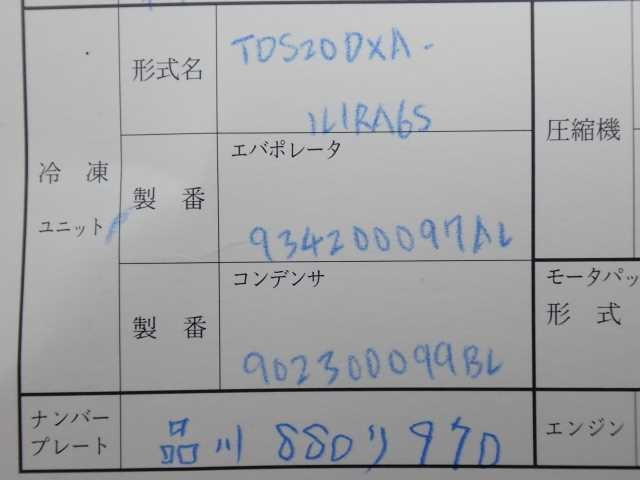 形式名
TDS20DXA-
1L1RA6S
圧縮機
冷凍
ユニット
エバポレータ
製番
934200097AL
コンデンサ
製番
902300099BL
モータパッ
形式
ナンバー
プレート
品川 880り 970
エンジン